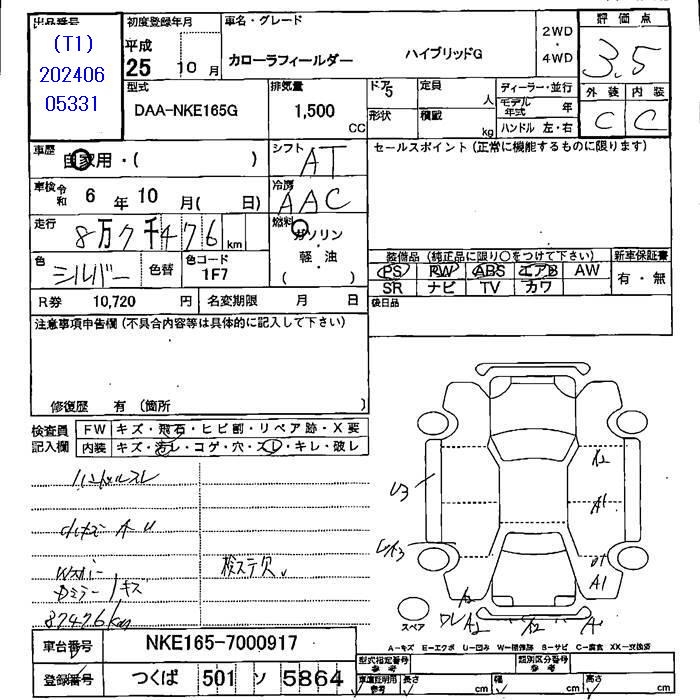 出品番号
(T1)
202406
05331
初度登録年月
平成
25 10 月
車名・グレード
カローラフィールダー ハイブリッドG
2WD
・
4WD
評価点
3.5
外装 内装
C C
型式
DAA-NKE165G
排気量
1,500
CC
ドア
5
形状
定員
人
積載
kg
ディーラー・並行
モデル年式 年
ハンドル 左・右
車歴
自家用・( )
シフト
AT
車検 令和 6 年 10 月( 日)
冷房
AAC
走行
8万7千476 km
燃料
ガソリン
・
軽・油
( )
色
シルバー
色替
色コード
1F7
R券 10,720 円
名変期限 月 日
セールスポイント(正常に機能するものに限ります)
装備品(純正品に限り○をつけて下さい)
PS PW ABS エアB AW
SR ナビ TV カワ
新車保証書
有・無
後日品
注意事項申告欄(不具合内容等は具体的に記入して下さい)
修復歴 有 (箇所 )
検査員
記入欄
FW キズ・飛石・ヒビ割・リペア跡・X要
内装 キズ・汚レ・コゲ・穴・スレ・キレ・破レ
ハンドルスレ
キズ
87476km
検ステ欠
U3
A2
A1
A1
スペア
A2
A-キズ E-エクボ U-凹み W-補修跡 S-サビ C-腐食 XX-交換済
車台番号 NKE165-7000917
登録番号 つくば 501 ソ 5864
型式指定番号
参考
類別区分番号
参考
車庫証明用
参考
長さ
cm
幅
cm
高さ
cm